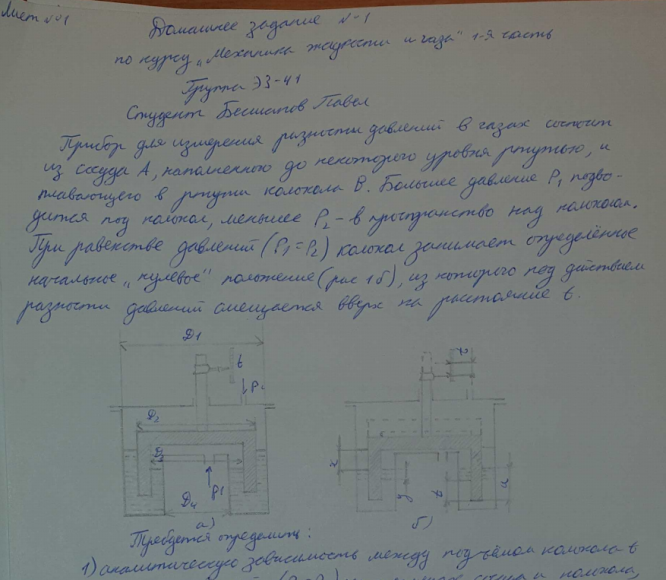 Лист №1
Домашнее задание №1
по курсу „Механика жидкости и газа" 1-я часть
Группа ЭЗ-41
Студент Бесшапов Павел
Прибор для измерения разности давлений в газах состоит
из сосуда А, наполненного до некоторого уровня ртутью, и
плавающего в ртути колокола В. Большее давление P1 подво-
дится под колокол, меньшее P2 - в пространство над колоколом.
При равенстве давлений (P1=P2) колокол занимает определённое
начальное „нулевое" положение (рис 1б), из которого под действием
разности давлений смещается вверх на расстояние b.
D1
b
P2
D2
D3
P1
D4
а)
б)
Требуется определить:
1) аналитическую зависимость между подъёмом колокола b
колокола,